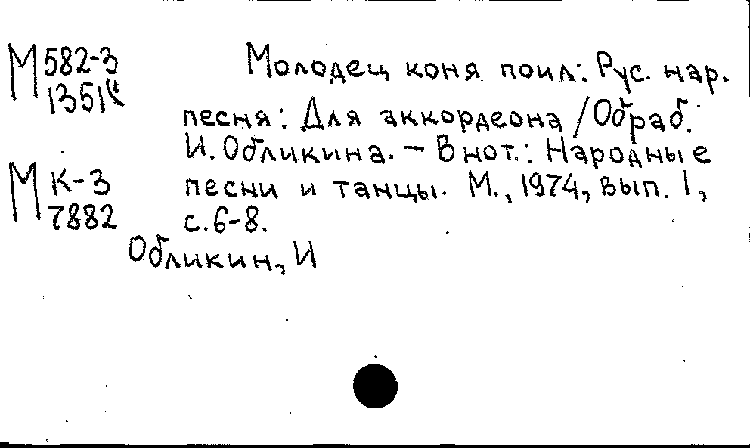 М 582-3 Молодец коня поил: Рус. нар.
1351
песня: Для аккордеона / Обраб.
И. Обликина. – В нот.: Народные
М К-3 песни и танцы. М., 1974, вып. 1,
7882 с. 6-8.
Обликин, И